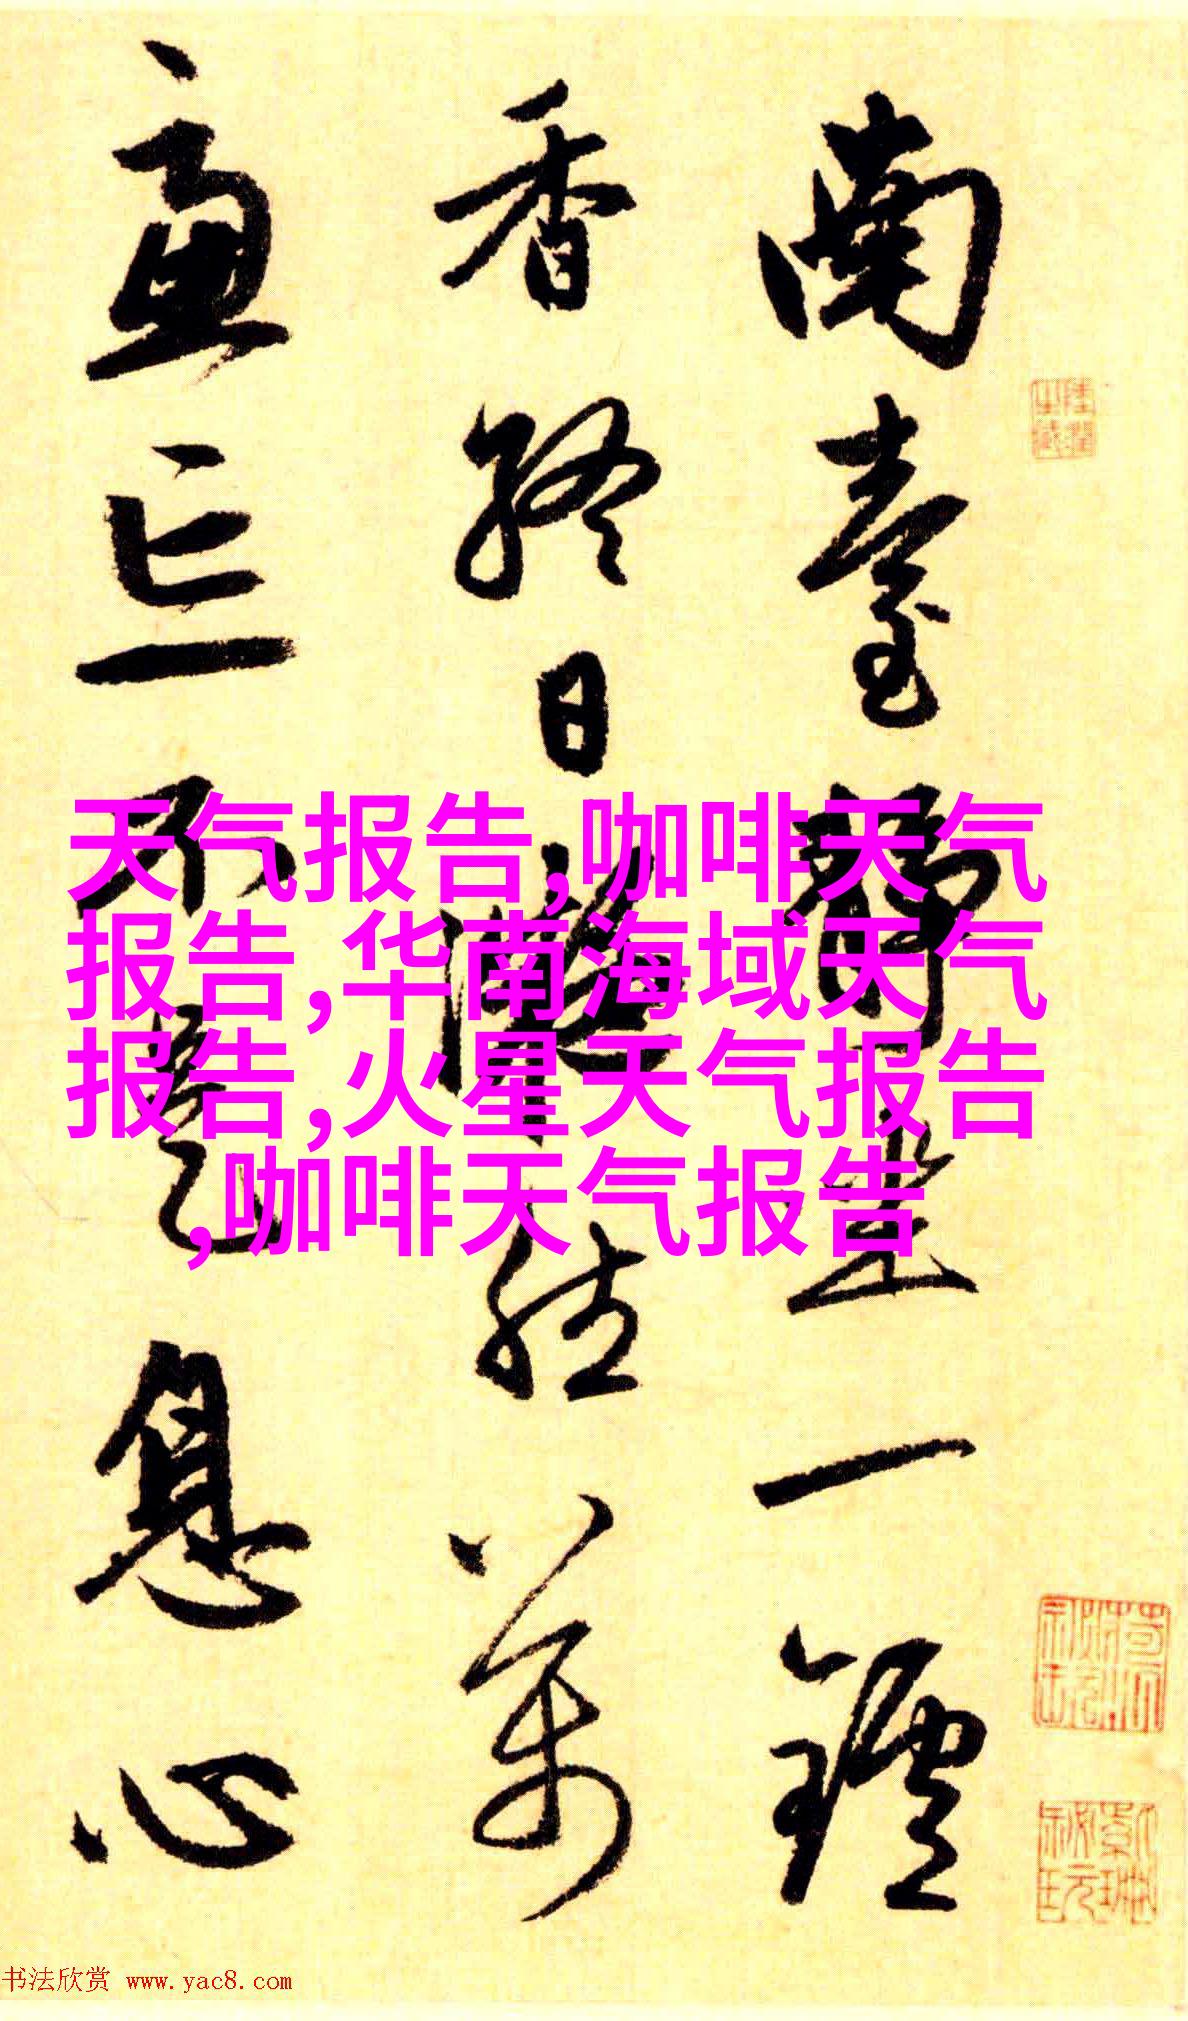 南臺靜坐一鑪
香終日凝然萬
慮亡不是息心
天气报告,咖啡天气
报告,华南海域天气
报告,火星天气报告
,咖啡天气报告
书法欣赏 www.yac8.com